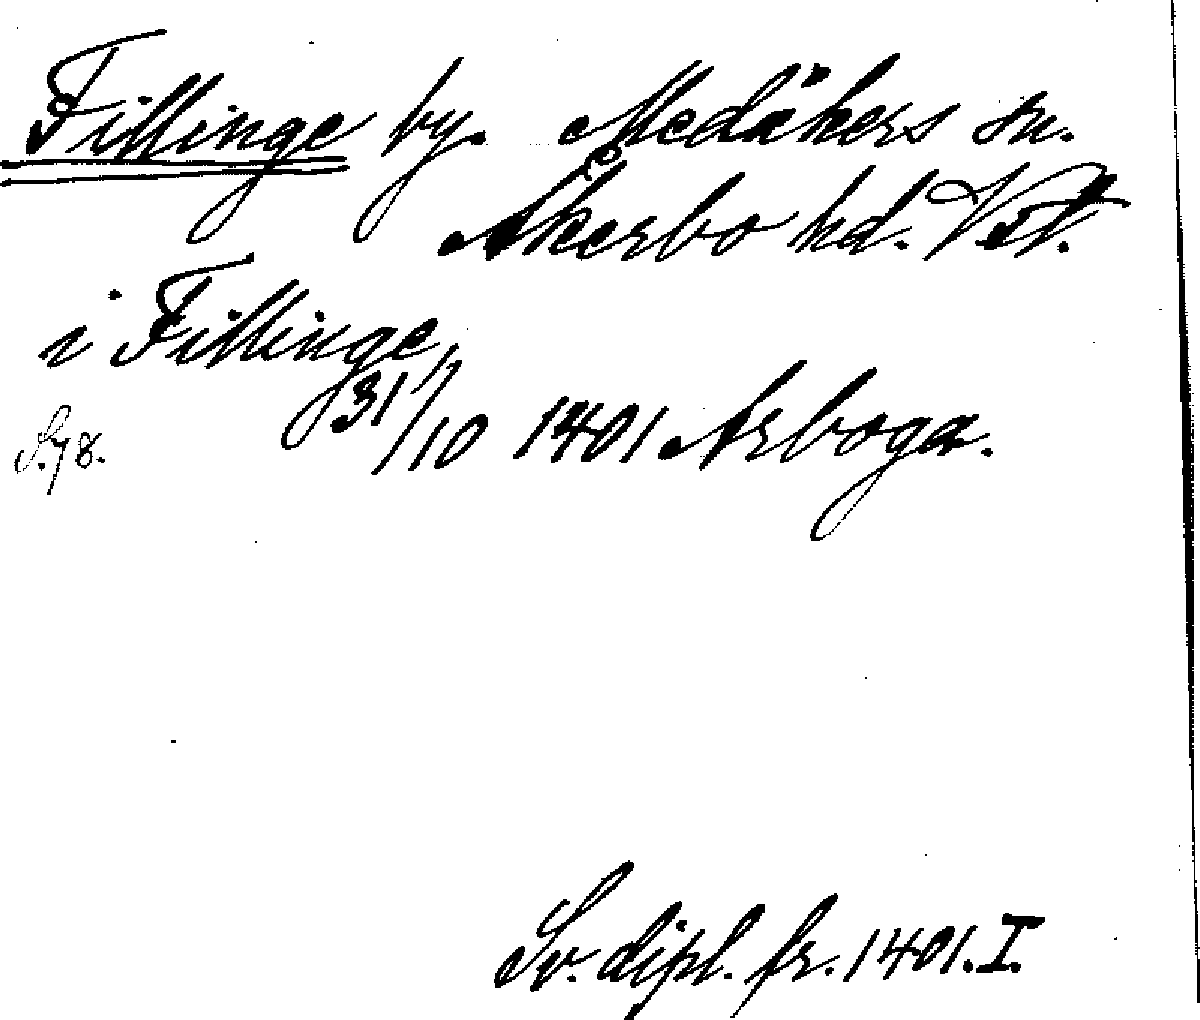 Fillinge by. Medåkers sn.
Åkerbo hd. Vstl.
i Fillinge,
31/10 1401 Arboga.
S. 78.
Sv. dipl. fr. 1401. I.